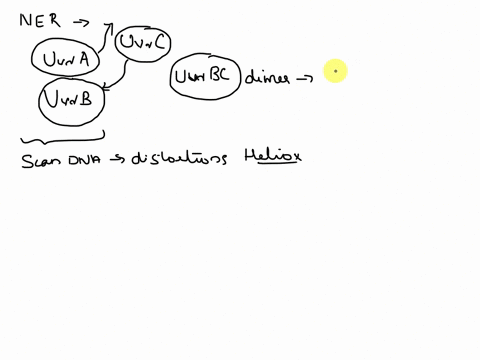 NER →
UvrA
UvrC
UvrB
UvrBC dimer →
Scan DNA → distortions Heliox